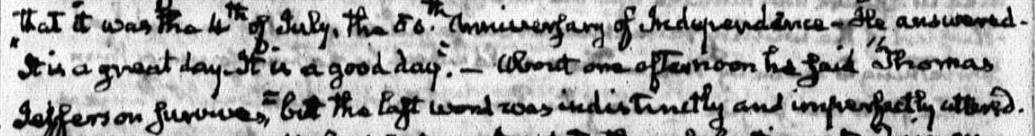 that it was the 4th of July, the 50.th Anniversary of Independence – He answered –
"It is a great day. It is a good day". – About one afternoon he said "Thomas
Jefferson survives", but the last word was indistinctly and imperfectly uttered.